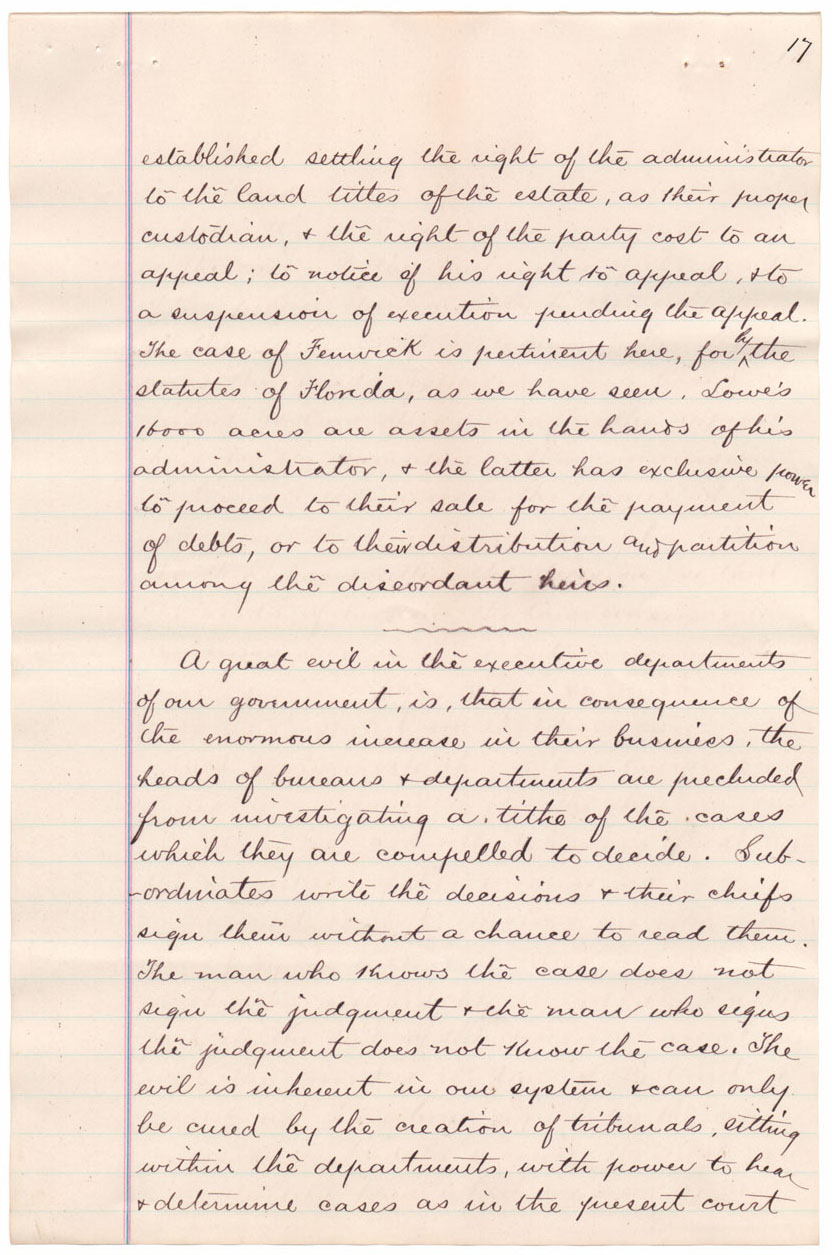 17
established settling the right of the administrator
to the land titles of the estate, as their proper
custodian, & the right of the party cost to an
appeal; to notice of his right to appeal, & to
a suspension of execution pending the appeal.
The case of Fenwick is pertinent here, for by the
statutes of Florida, as we have seen. Lowe's
16000 acres are assets in the hands of his
administrator, & the latter has exclusive power
to proceed to their sale for the payment
of debts, or to their distribution and partition
among the discordant heirs.
A great evil in the executive departments
of our government, is, that in consequence of
the enormous increase in their business, the
heads of bureaus & departments are precluded
from investigating a tithe of the cases
which they are compelled to decide. Sub-
-ordinates write the decisions & their chiefs
sign them without a chance to read them.
The man who knows the case does not
sign the judgment & the man who signs
the judgment does not know the case. The
evil is inherent in our system & can only
be cured by the creation of tribunals, sitting
within the departments, with power to hear
& determine cases as in the present court